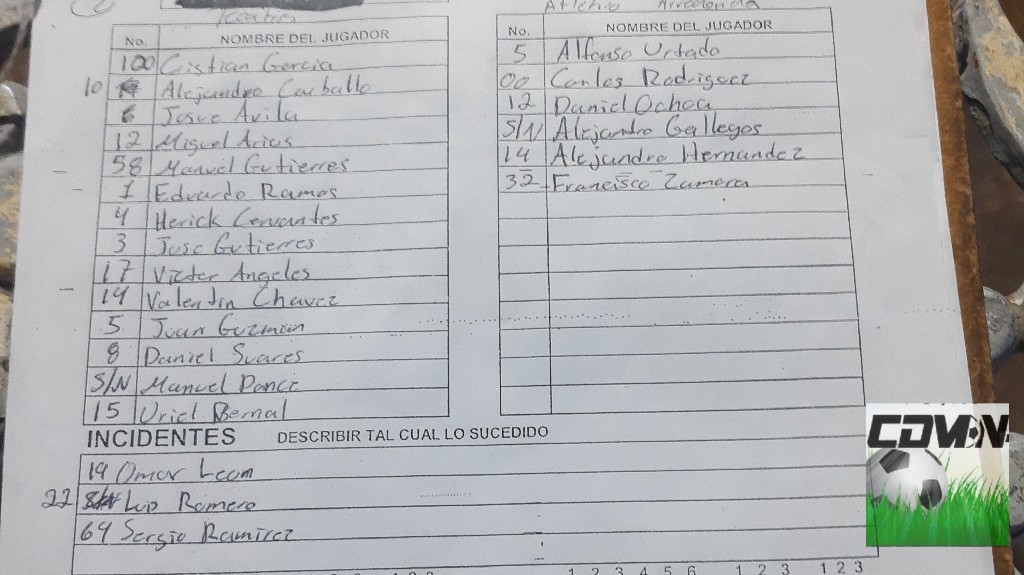 Atletico
No. NOMBRE DEL JUGADOR
100 Cistian Gercia
10 Alejandro Carballo
6 Josue Avila
12 Miguel Arias
58 Manuel Gutierres
1 Eduardo Ramos
4 Herick Cervantes
3 Jose Gutierres
17 Victer Angeles
14 Valentin Chavez
5 Juan Guzman
8 Daniel Suares
S/N Manuel Ponce
15 Uriel Bernal
No. NOMBRE DEL JUGADOR
5 Alfonso Urtado
00 Carlos Rodriguez
12 Daniel Ochoa
S/N Alejandro Gallegos
14 Alejandro Hernandez
32 Francisco Zamora
INCIDENTES DESCRIBIR TAL CUAL LO SUCEDIDO
19 Omar Leom
22 Luis Romero
69 Sergio Ramirez
1 2 3 4 5 6 1 2 3 1 2 3
CDMN